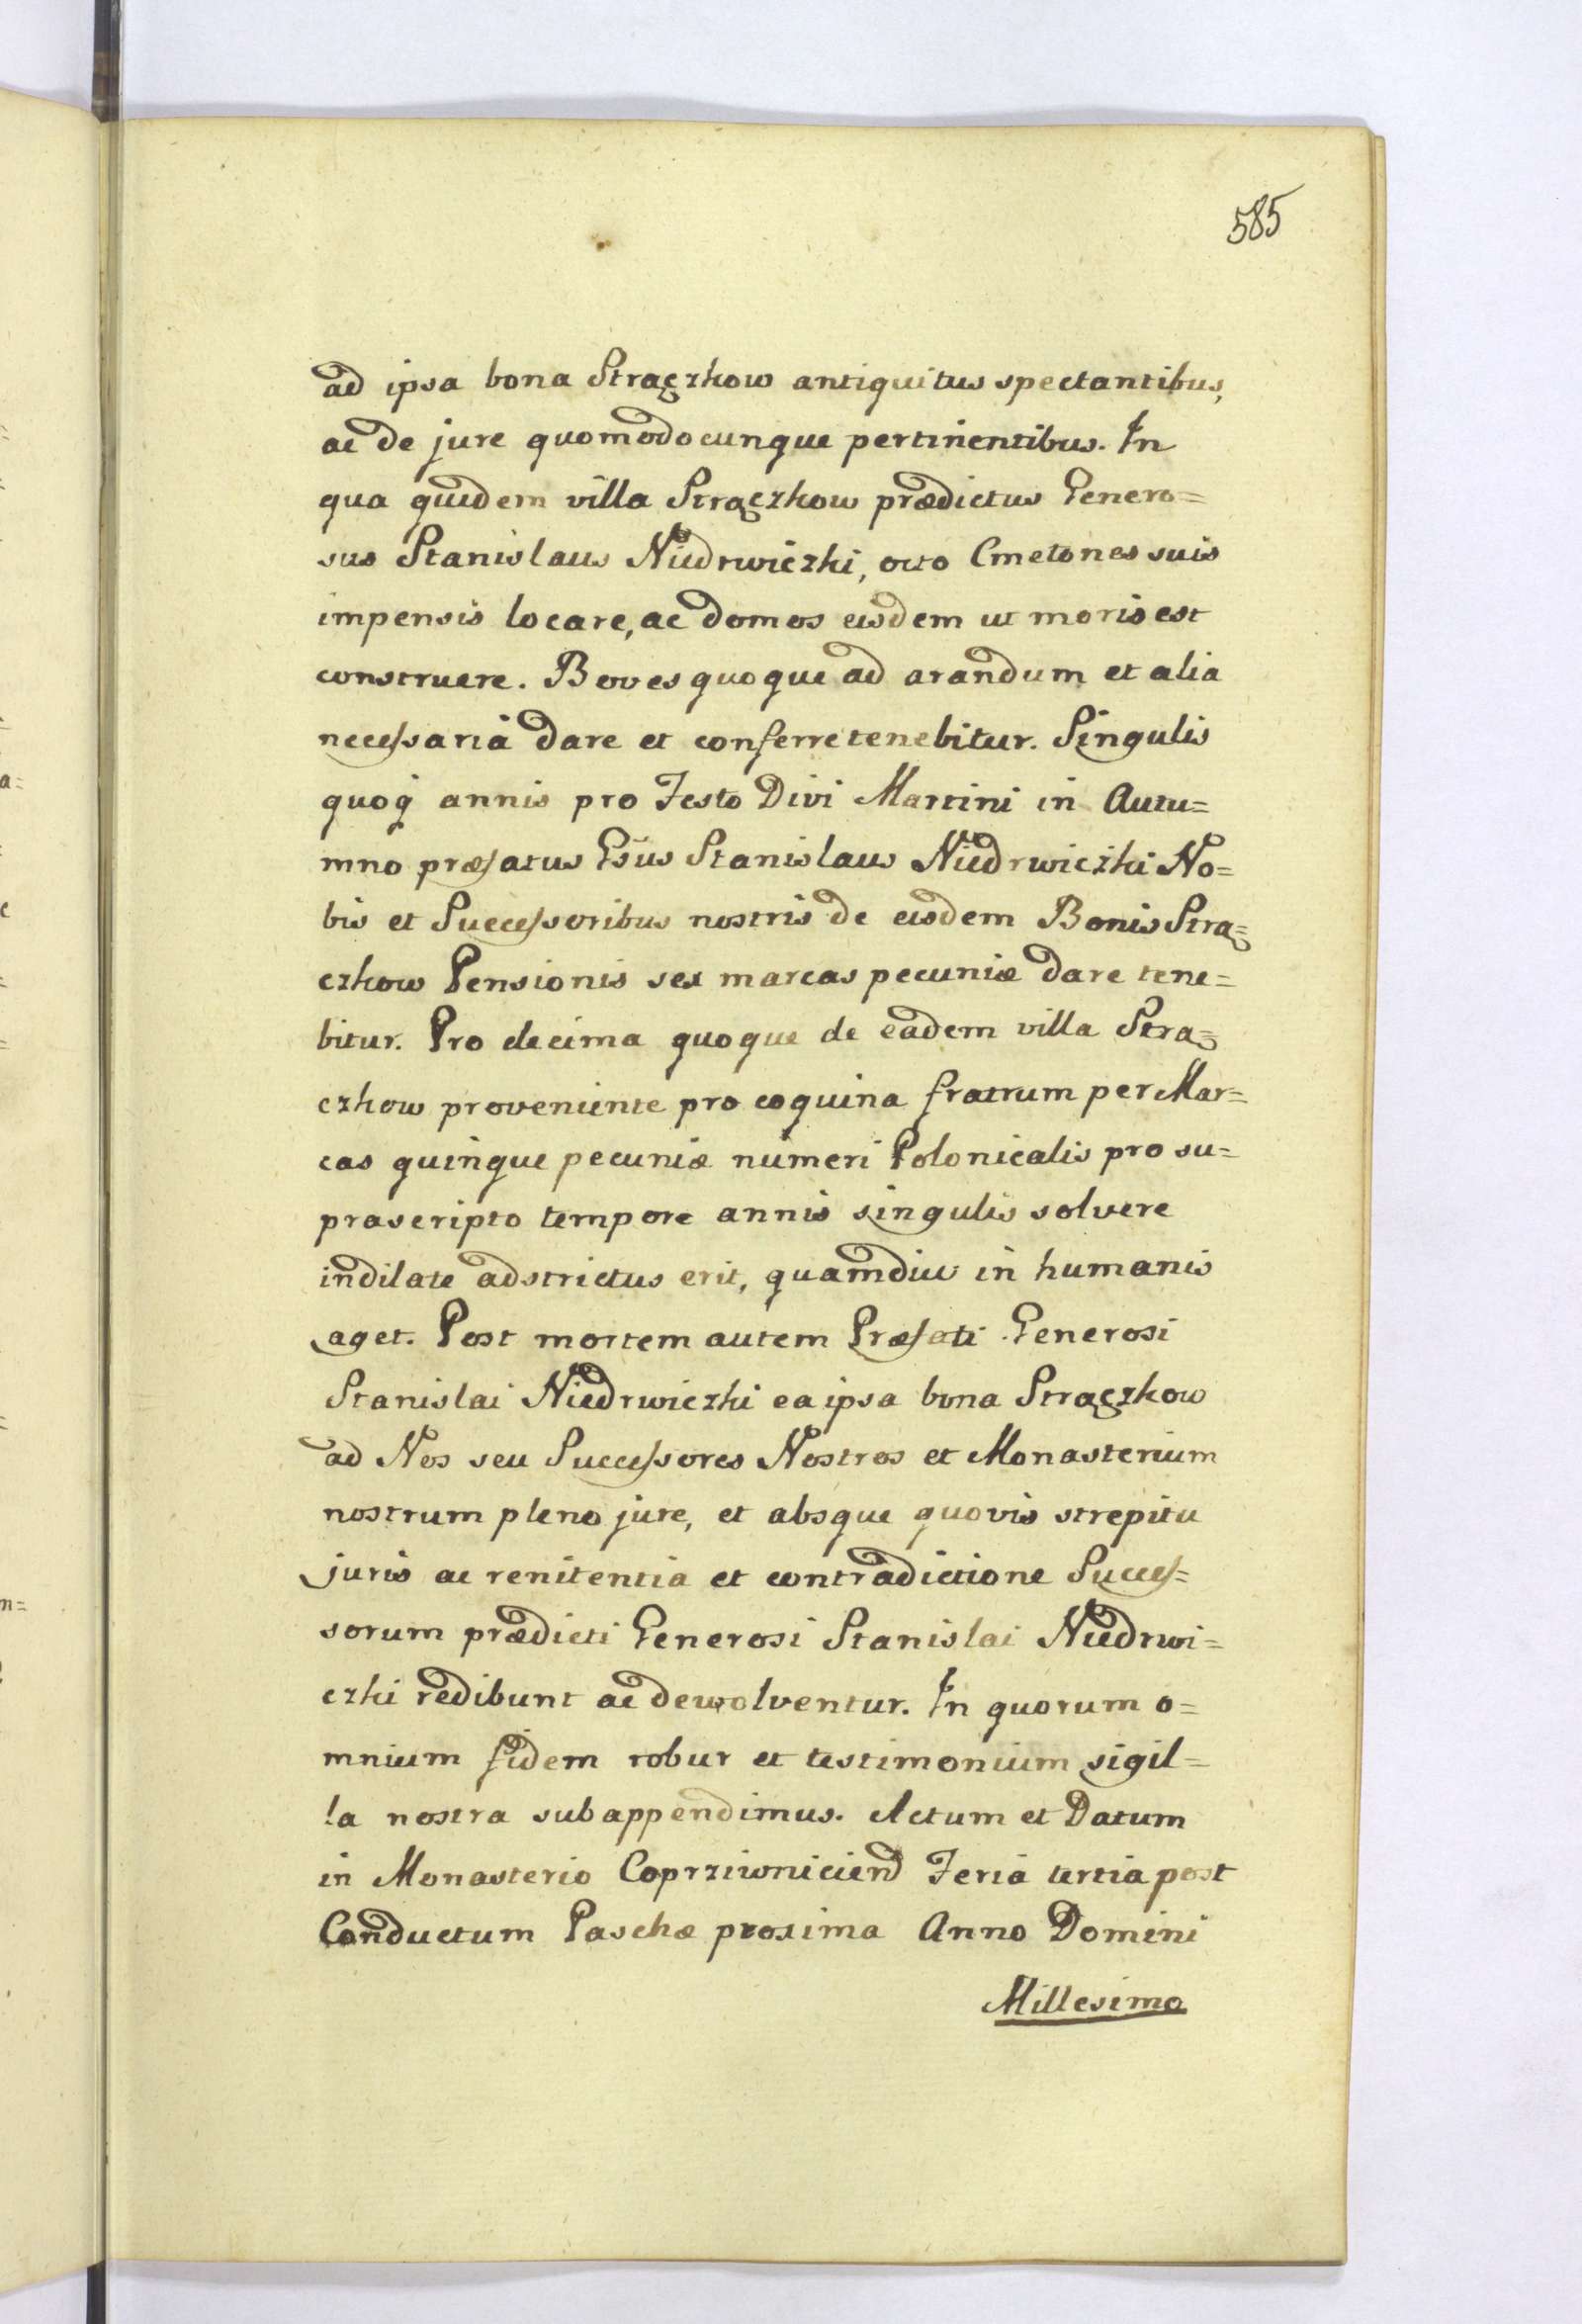 585
ad ipsa bona Strączkow antiquitus spectantibus,
ac de jure quomodocunque pertinentibus. In
qua quidem villa Strączkow prædictus Genero=
sus Stanislaus Niedrwiczki, octo Cmetones suis
impensis locare, ac domos eisdem ut moris est
construere. Boves quoque ad arandum et alia
necessaria dare et conferre tenebitur. Singulis
quoq̇ annis pro Festo Divi Martini in Autu=
mno præfatus Gs̃us Stanislaus Niedrwiczki No=
bis et Successoribus nostris de eisdem Bonis Strą=
czkow Pensionis sex marcas pecuniæ dare tene=
bitur. Pro decima quoque de eadem villa Strą=
czkow proveniente pro coquina fratrum per Mar=
cas quinque pecuniæ numeri Polonicalis pro su=
prascripto tempore annis singulis solvere
indilate adstrictus erit, quamdiu in humanis
aget. Post mortem autem Præfati Generosi
Stanislai Niedrwiczki ea ipsa bona Strączkow
ad Nos seu Successores Nostros et Monasterium
nostrum pleno jure, et absque quovis strepitu
juris ac renitentia et contradictione Succes=
sorum prædicti Generosi Stanislai Niedrwi=
czki redibunt ac dewolventur. In quorum o=
mnium fidem robur et testimonium sigil=
la nostra subappendimus. Actum et Datum
in Monasterio Coprziwnicien̄ Feria tertia post
Conductum Paschæ proxima Anno Domini
Millesimo